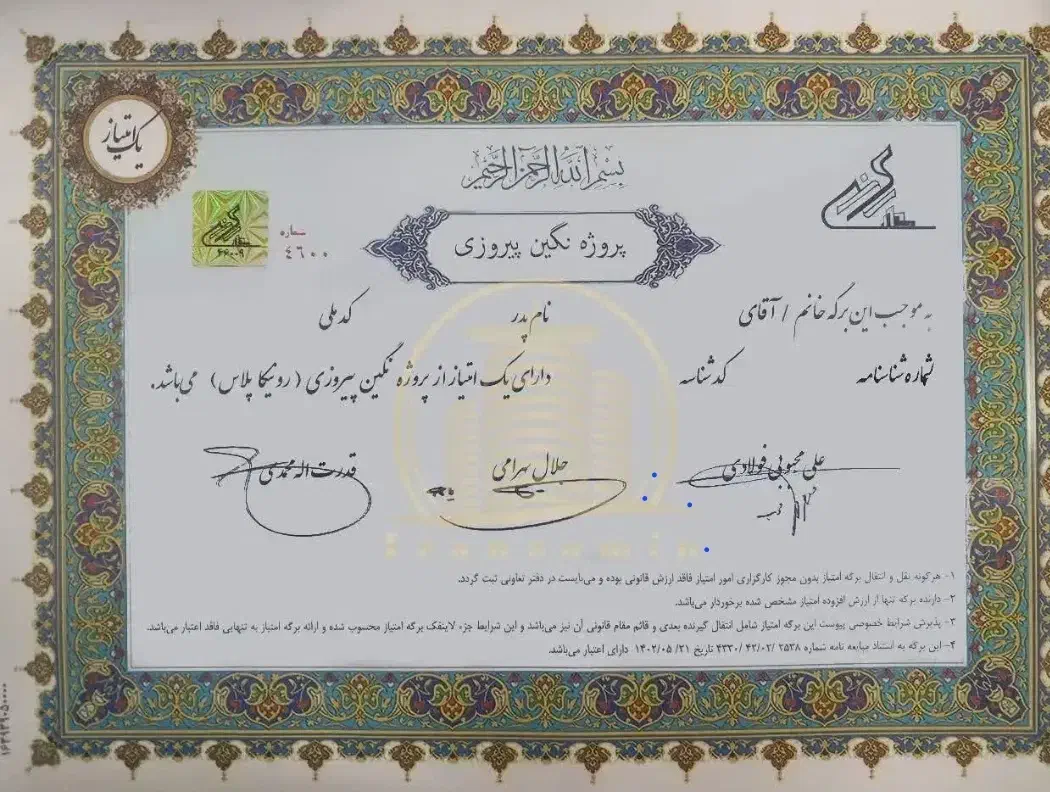 بسم الله الرحمن الرحیم
یک امتیاز
شماره
٤٦٠٠
پروژه نگین پیروزی
به موجب این برگه خانم / آقای
نام پدر
کد ملی
شماره شناسنامه
کد شناسه
دارای یک امتیاز از پروژه نگین پیروزی (رونیکا پلاس) می‌باشد.
علی محبوبی فولادی
جلال بهرامی
قدرت اله محمدی
۱- هرگونه نقل و انتقال برگه امتیاز بدون مجوز کارگزاری امور امتیاز فاقد ارزش قانونی بوده و می‌بایست در دفتر تعاونی ثبت گردد.
۲- دارنده برگه تنها از ارزش افزوده امتیاز مشخص شده برخوردار می‌باشد.
۳- پذیرش شرایط خصوصی پیوست این برگه امتیاز شامل انتقال گیرنده بعدی و قائم مقام قانونی آن نیز می‌باشد و این شرایط جزء لاینفک برگه امتیاز محسوب شده و ارائه برگه امتیاز به تنهایی فاقد اعتبار می‌باشد.
۴- این برگه به استناد مبایعه نامه شماره ۲۵۳۸ /۴۲/۰۲ /۴۳۲۰ تاریخ ۲۱/ ۰۵/ ۱۴۰۲ دارای اعتبار می‌باشد.